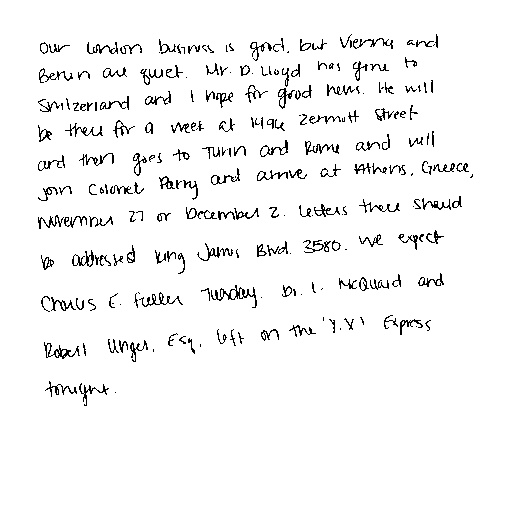 Our London business is good, but Vienna and
Berlin are quiet. Mr. D. Lloyd has gone to
Switzerland and I hope for good news. He will
be there for a week at 1496 Zermott Street
and then goes to Turin and Rome and will
join Colonel Parry and arrive at Athens, Greece,
November 27 or December 2. Letters there should
be addressed King James Blvd. 3580. We expect
Charles E. Fuller Tuesday. Dr. L. McQuaid and
Robert Unger, Esq. left on the 'Y.X' Express
tonight.